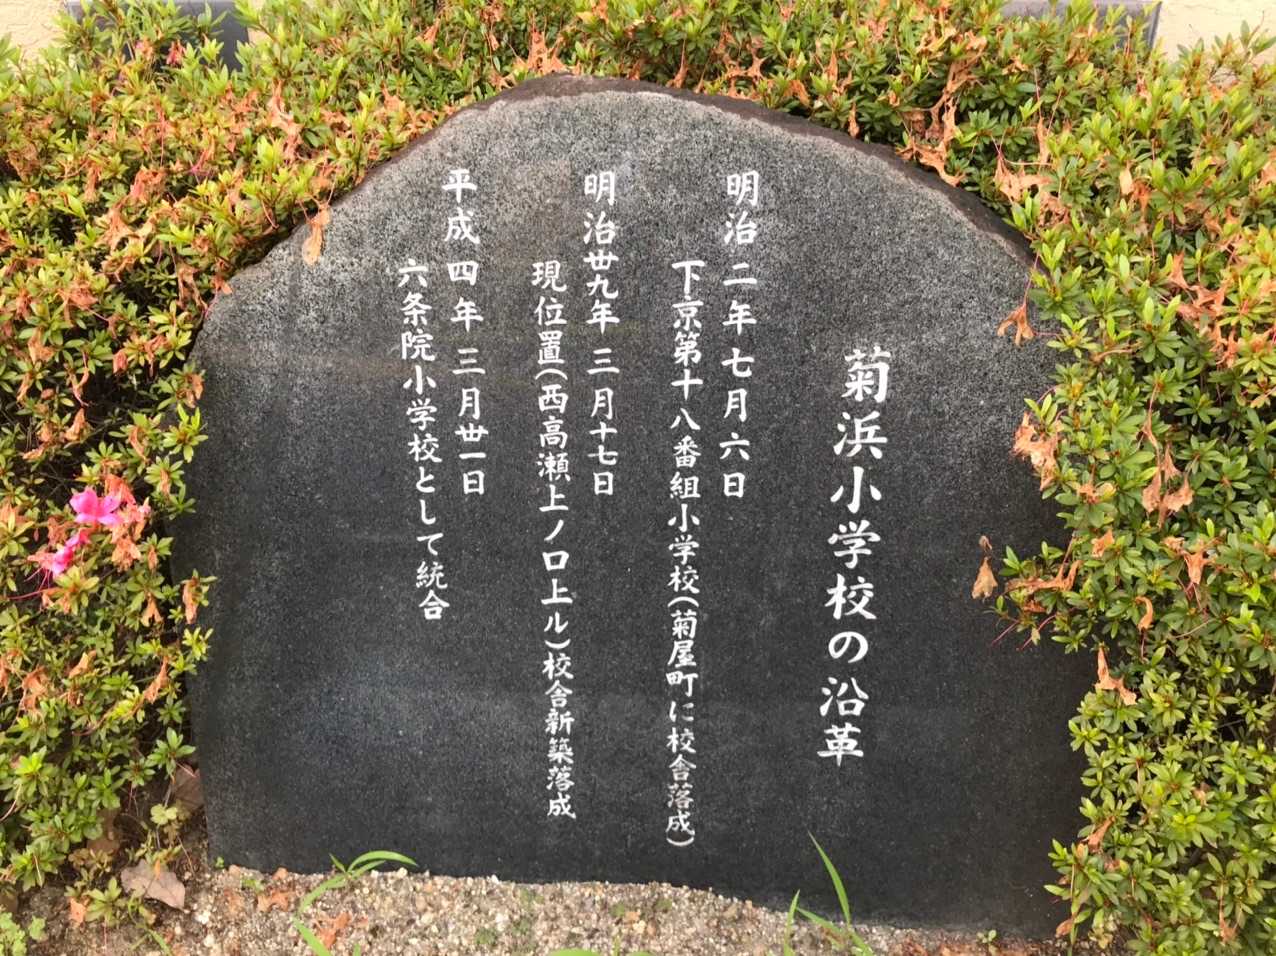 菊浜小学校の沿革
明治二年七月六日
下京第十八番組小学校(菊屋町に校舎落成)
明治丗九年三月十七日
現位置(西高瀬上ノ口上ル)校舎新築落成
平成四年三月丗一日
六条院小学校として統合